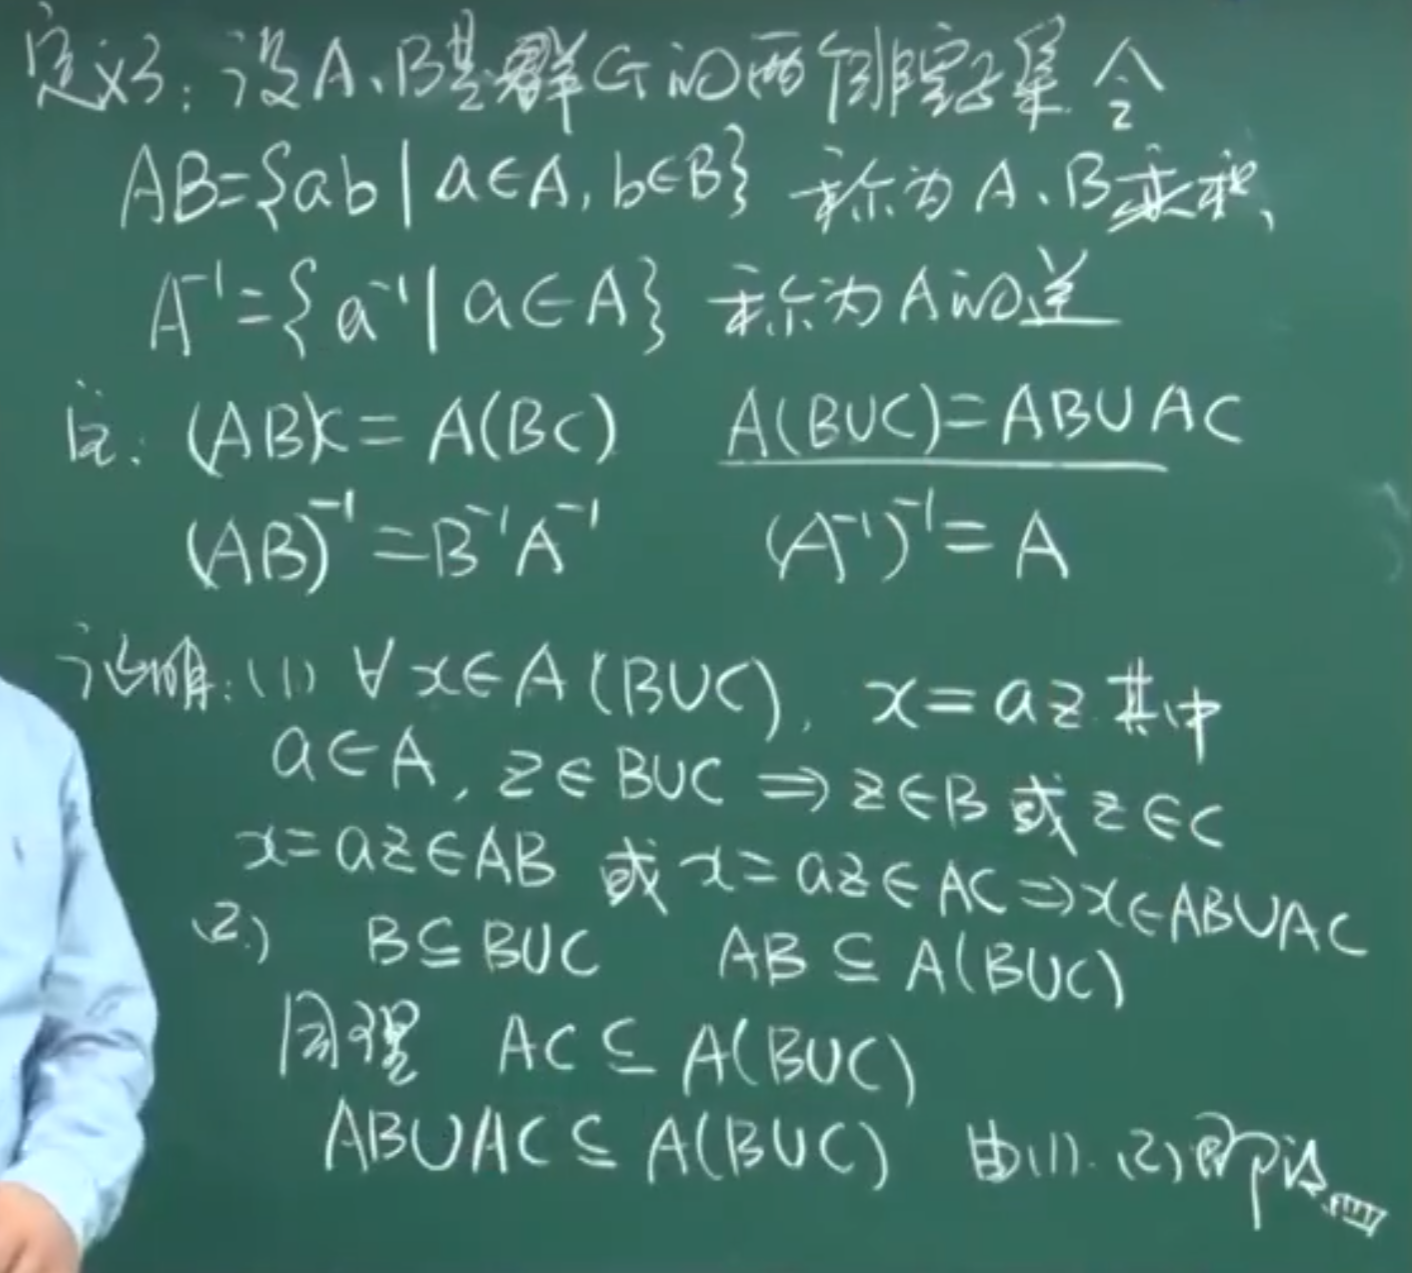 定义3:设A、B是群G的两个非空子集 令
AB={ab | a∈A, b∈B} 称为A、B乘积、
A⁻¹={a⁻¹ | a∈A} 称为A的逆
注:(AB)C=A(BC) A(B∪C)=AB∪AC
(AB)⁻¹=B⁻¹A⁻¹ (A⁻¹)⁻¹=A
证明:(1) ∀x∈A(B∪C), x=az 其中
a∈A, z∈B∪C ⇒ z∈B 或 z∈C
x=az∈AB 或 x=az∈AC⇒x∈AB∪AC
(2) B⊆B∪C AB⊆A(B∪C)
同理 AC⊆A(B∪C)
AB∪AC⊆A(B∪C) 由(1).(2)即可证